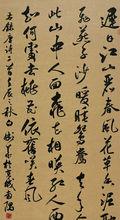 遲日江山麗春風花草香泥
融飛燕子沙暖睡鴛鴦去年今日
此門中人面桃花相映紅人面不
知何處去桃花依舊笑春風
右錄唐詩二首